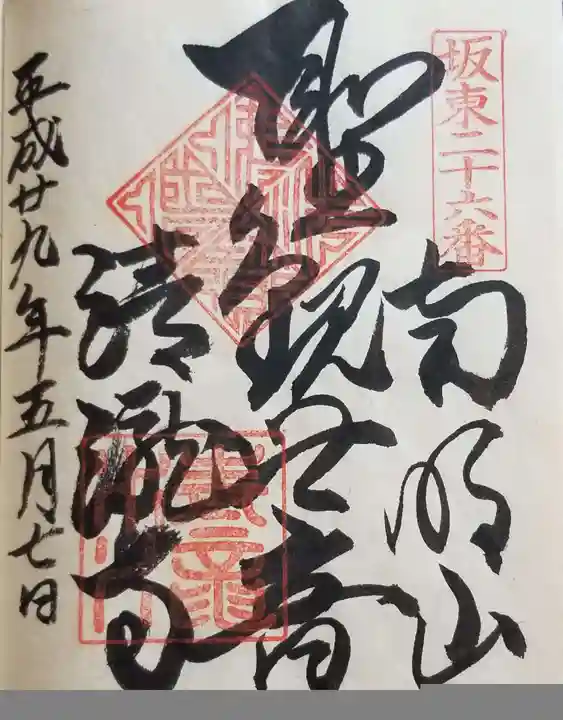 坂東二十六番
南明山
聖観世音
清瀧寺
平成廿九年五月七日